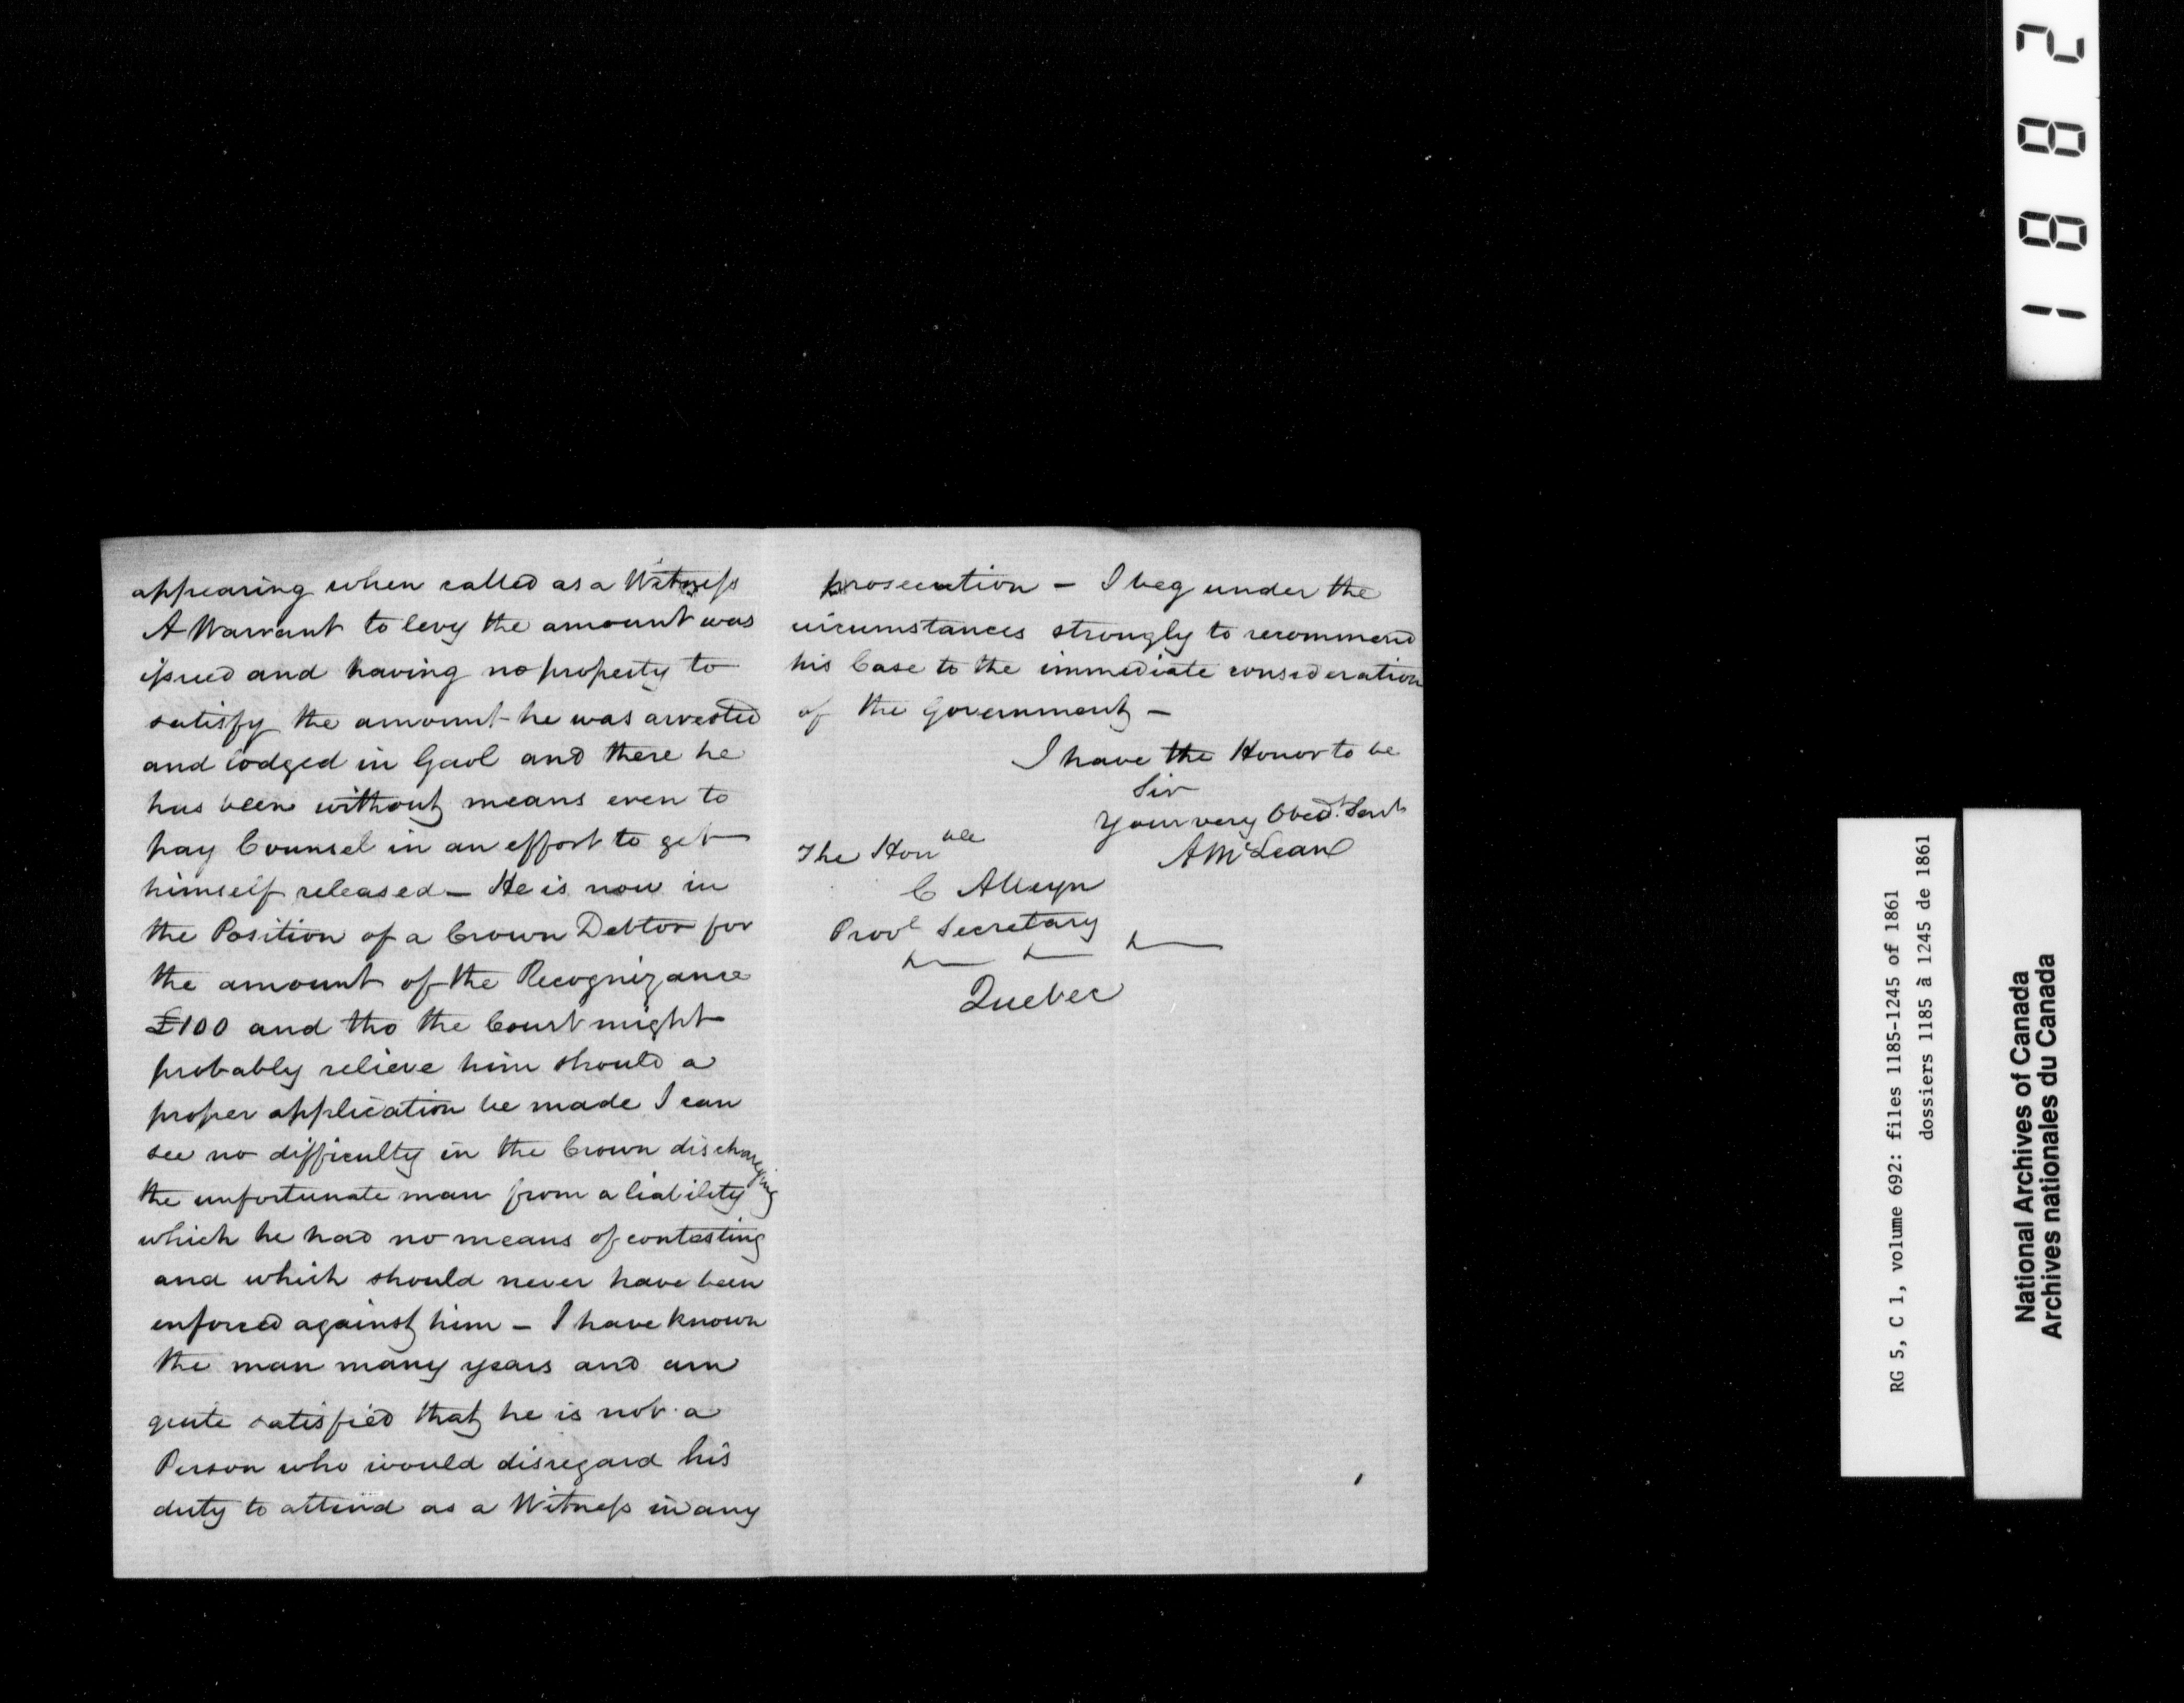 appearing when called as a Witness
A Warrant to levy the amount was
issued and having no property to
satisfy the amount he was arrested
and lodged in Gaol and there he
has been without means even to
pay Counsel in an effort to get
himself released — He is now in
the Position of a Crown Debtor for
the amount of the Recognizance
£100 and tho the Court might
probably relieve him should a
proper application be made I can
see no difficulty in the Crown discharging
the unfortunate man from a liability
which he had no means of contesting
and which should never have been
enforced against him — I have known
the man many years and am
quite satisfied that he is not a
Person who would disregard his
duty to attend as a Witness in any
prosecution — I beg under the
circumstances strongly to recommend
his Case to the immediate consideration
of the Government —
I have the Honor to be
Sir
Your very Obedt. Servt
A McLean
The Honble
C Alleyn
Provl Secretary
Quebec
1882
RG 5, C 1, volume 692: files 1185-1245 of 1861
dossiers 1185 à 1245 de 1861
National Archives of Canada
Archives nationales du Canada